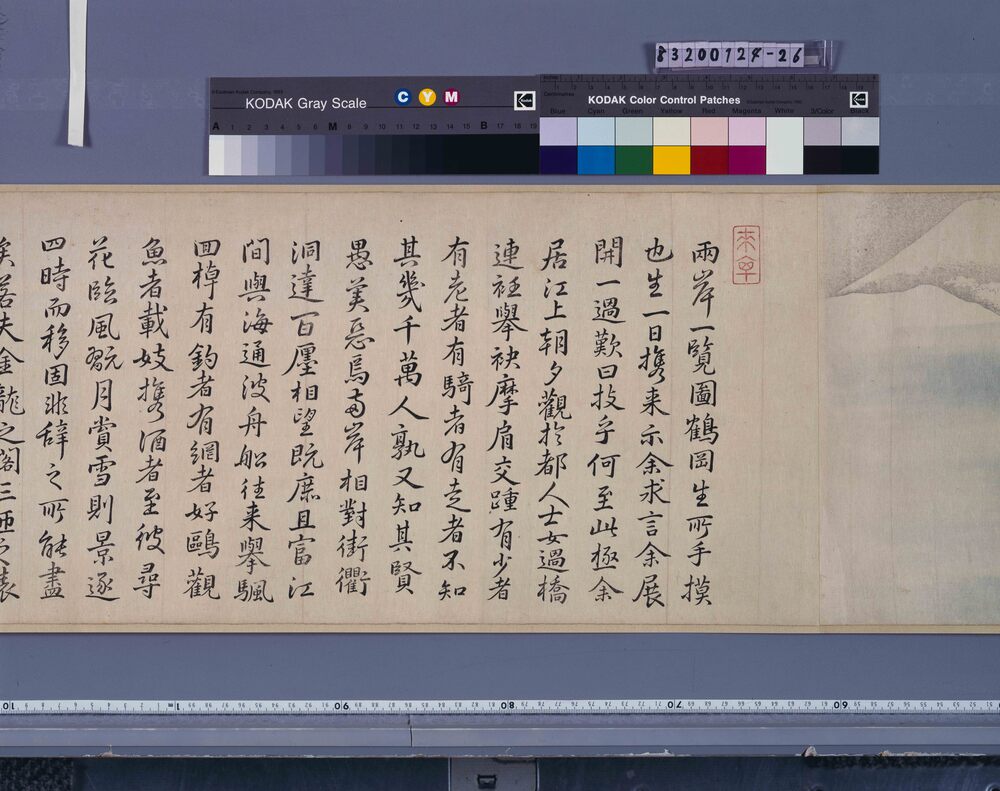 83200724-26
KODAK Gray Scale
C Y M
Kodak
A 1 2 3 4 5 6 M 8 9 10 11 12 13 14 15 B 17 18 19
KODAK Color Control Patches
Kodak
Blue Cyan Green Yellow Red Magenta White 3/Color Black
兩岸一覽圖鶴岡生所手摸
也生一日携来示余求言余展
開一過歎曰技乎何至此極余
居江上朝夕觀於都人士女過橋
連袵擧袂摩肩交踵有少者
有老者有騎者有走者不知
其幾千萬人孰又知其賢
愚美惡焉両岸相對街衢
洞達百廛相望既庶且富江
間與海通波舟舩往来擧颿
回棹有釣者有網者好鷗觀
魚者載妓携酒者至彼尋
花臨風翫月賞雪則景逐
四時而移固非辞之所能盡
矣若夫金龍之閣三